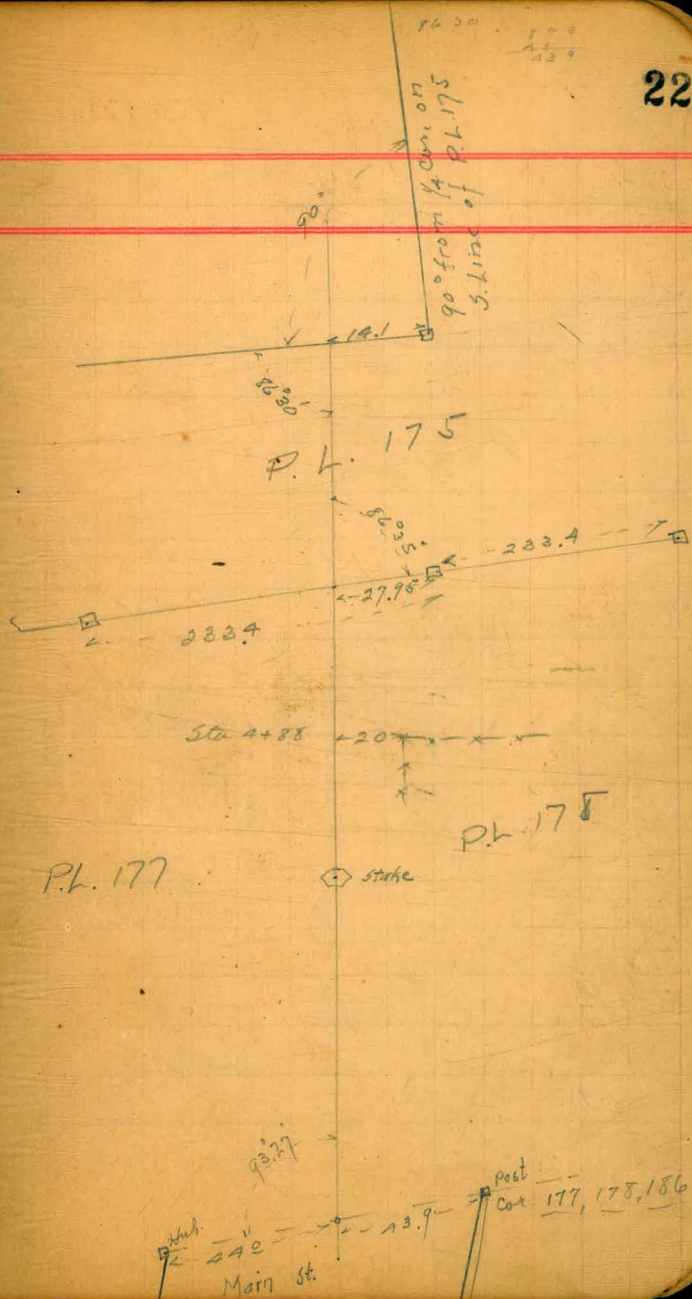 86 30
879
439
22
90° from ¼ Cor. on
S. Line of P.L. 175
90°
14.1
86°30'
P.L. 175
86°35'
233.4
27.95
233.4
Sta 4+88
20
P.L. 178
P.L. 177
Stake
93°27'
Post
Cor. 177, 178, 186
Hub.
43.9
Main St.